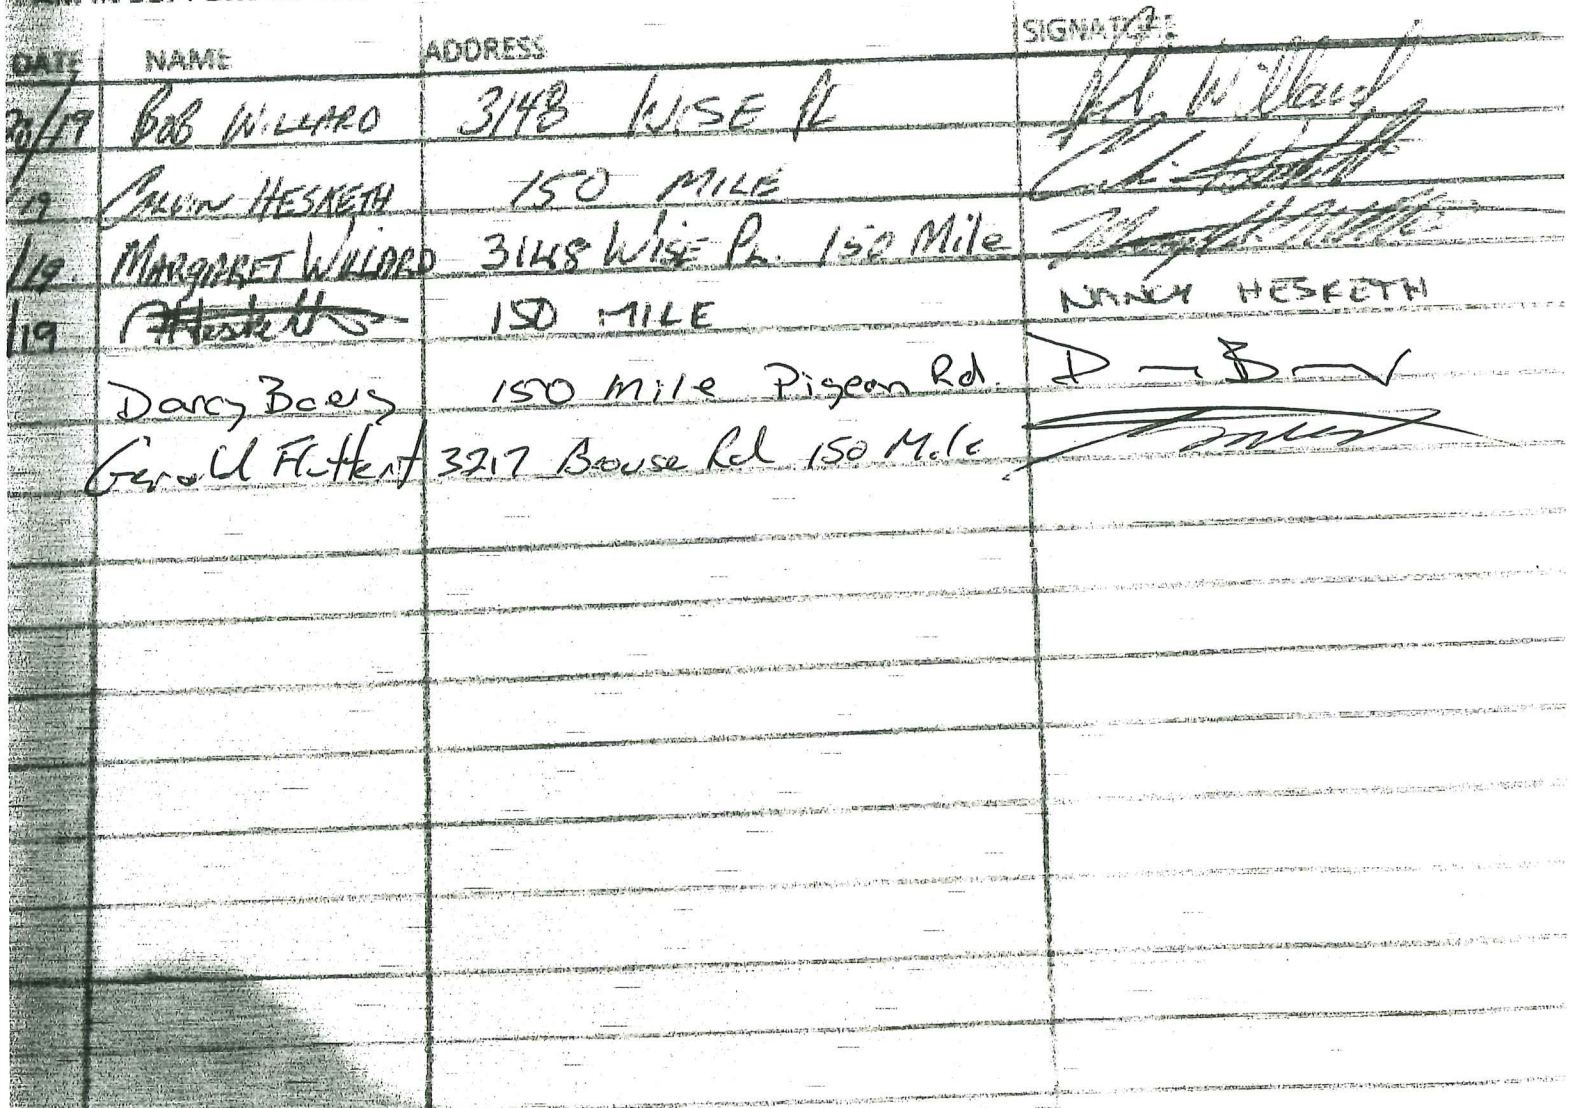 DATE NAME ADDRESS SIGNATURE
/19 BOB WILLARD 3148 WISE PL Willard
19 CALVIN HESKETH 150 MILE
/19 MARGARET WILLARD 3148 WISE PL. 150 Mile
/19 Hesketh 150 MILE NANCY HESKETH
Darcy 150 Mile Pigeon Rd.
Gerald 3217 Brouse Rd 150 Mile